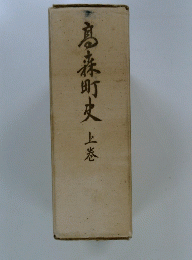 髙森町史
上巻